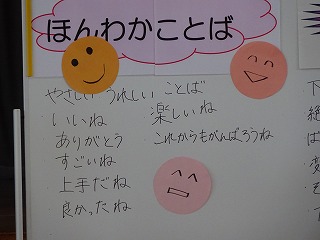 ほんわかことば
やさしい うれしい ことば
いいね
ありがとう
すごいね
上手だね
良かったね
楽しいね
これからもがんばろうね
下
絶
ば
変